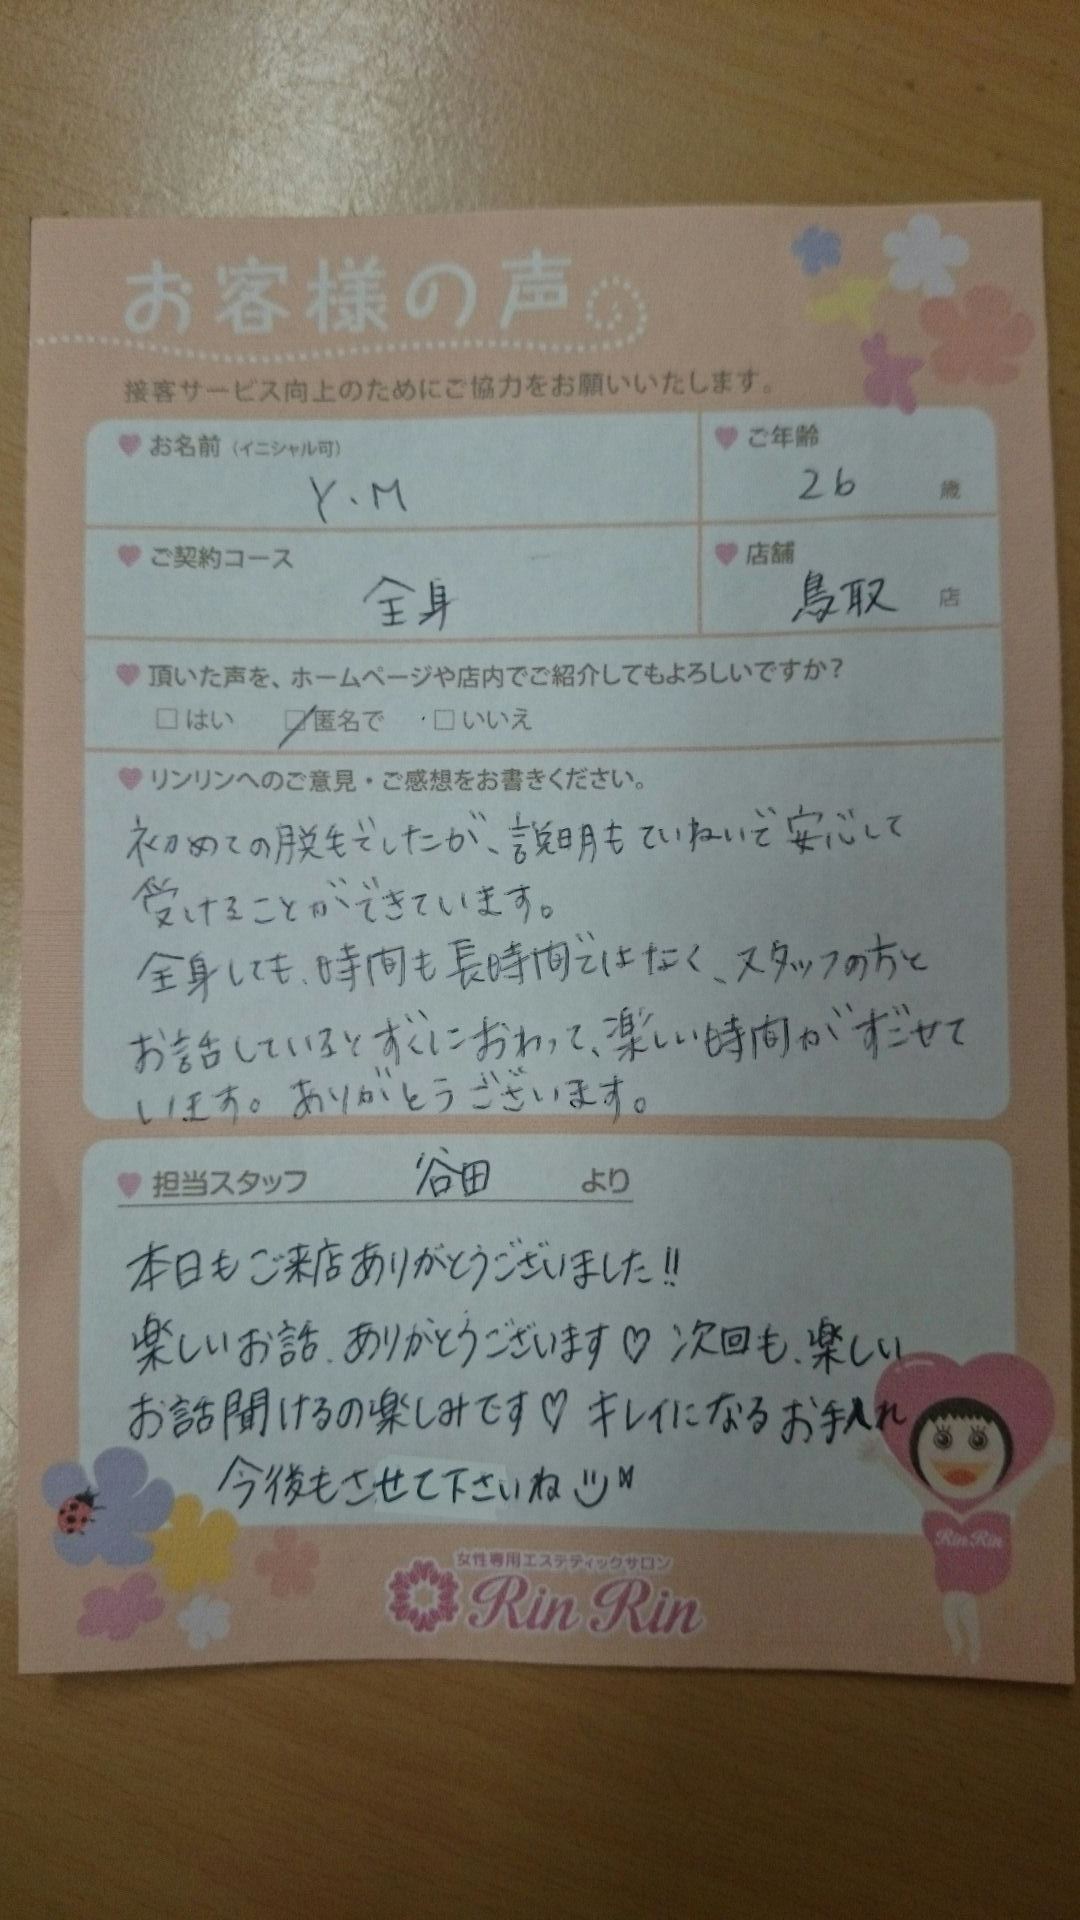 お客様の声
接客サービス向上のためにご協力をお願いいたします。
お名前（イニシャル可）
Y.M
ご年齢
26 歳
ご契約コース
全身
店舗
鳥取 店
頂いた声を、ホームページや店内でご紹介してもよろしいですか？
□はい □匿名で □いいえ
リンリンへのご意見・ご感想をお書きください。
初めての脱毛でしたが、説明もていねいで安心して
受けることができています。
全身しても、時間も長時間ではなく、スタッフの方と
お話しているとすぐにおわって、楽しい時間がすごせて
います。ありがとうございます。
担当スタッフ 谷田 より
本日もご来店ありがとうございました!!
楽しいお話、ありがとうございます♡ 次回も、楽しい
お話聞けるの楽しみです♡ キレイになるお手入れ
今後もさせて下さいね
RinRin
女性専用エステティックサロン
Rin Rin